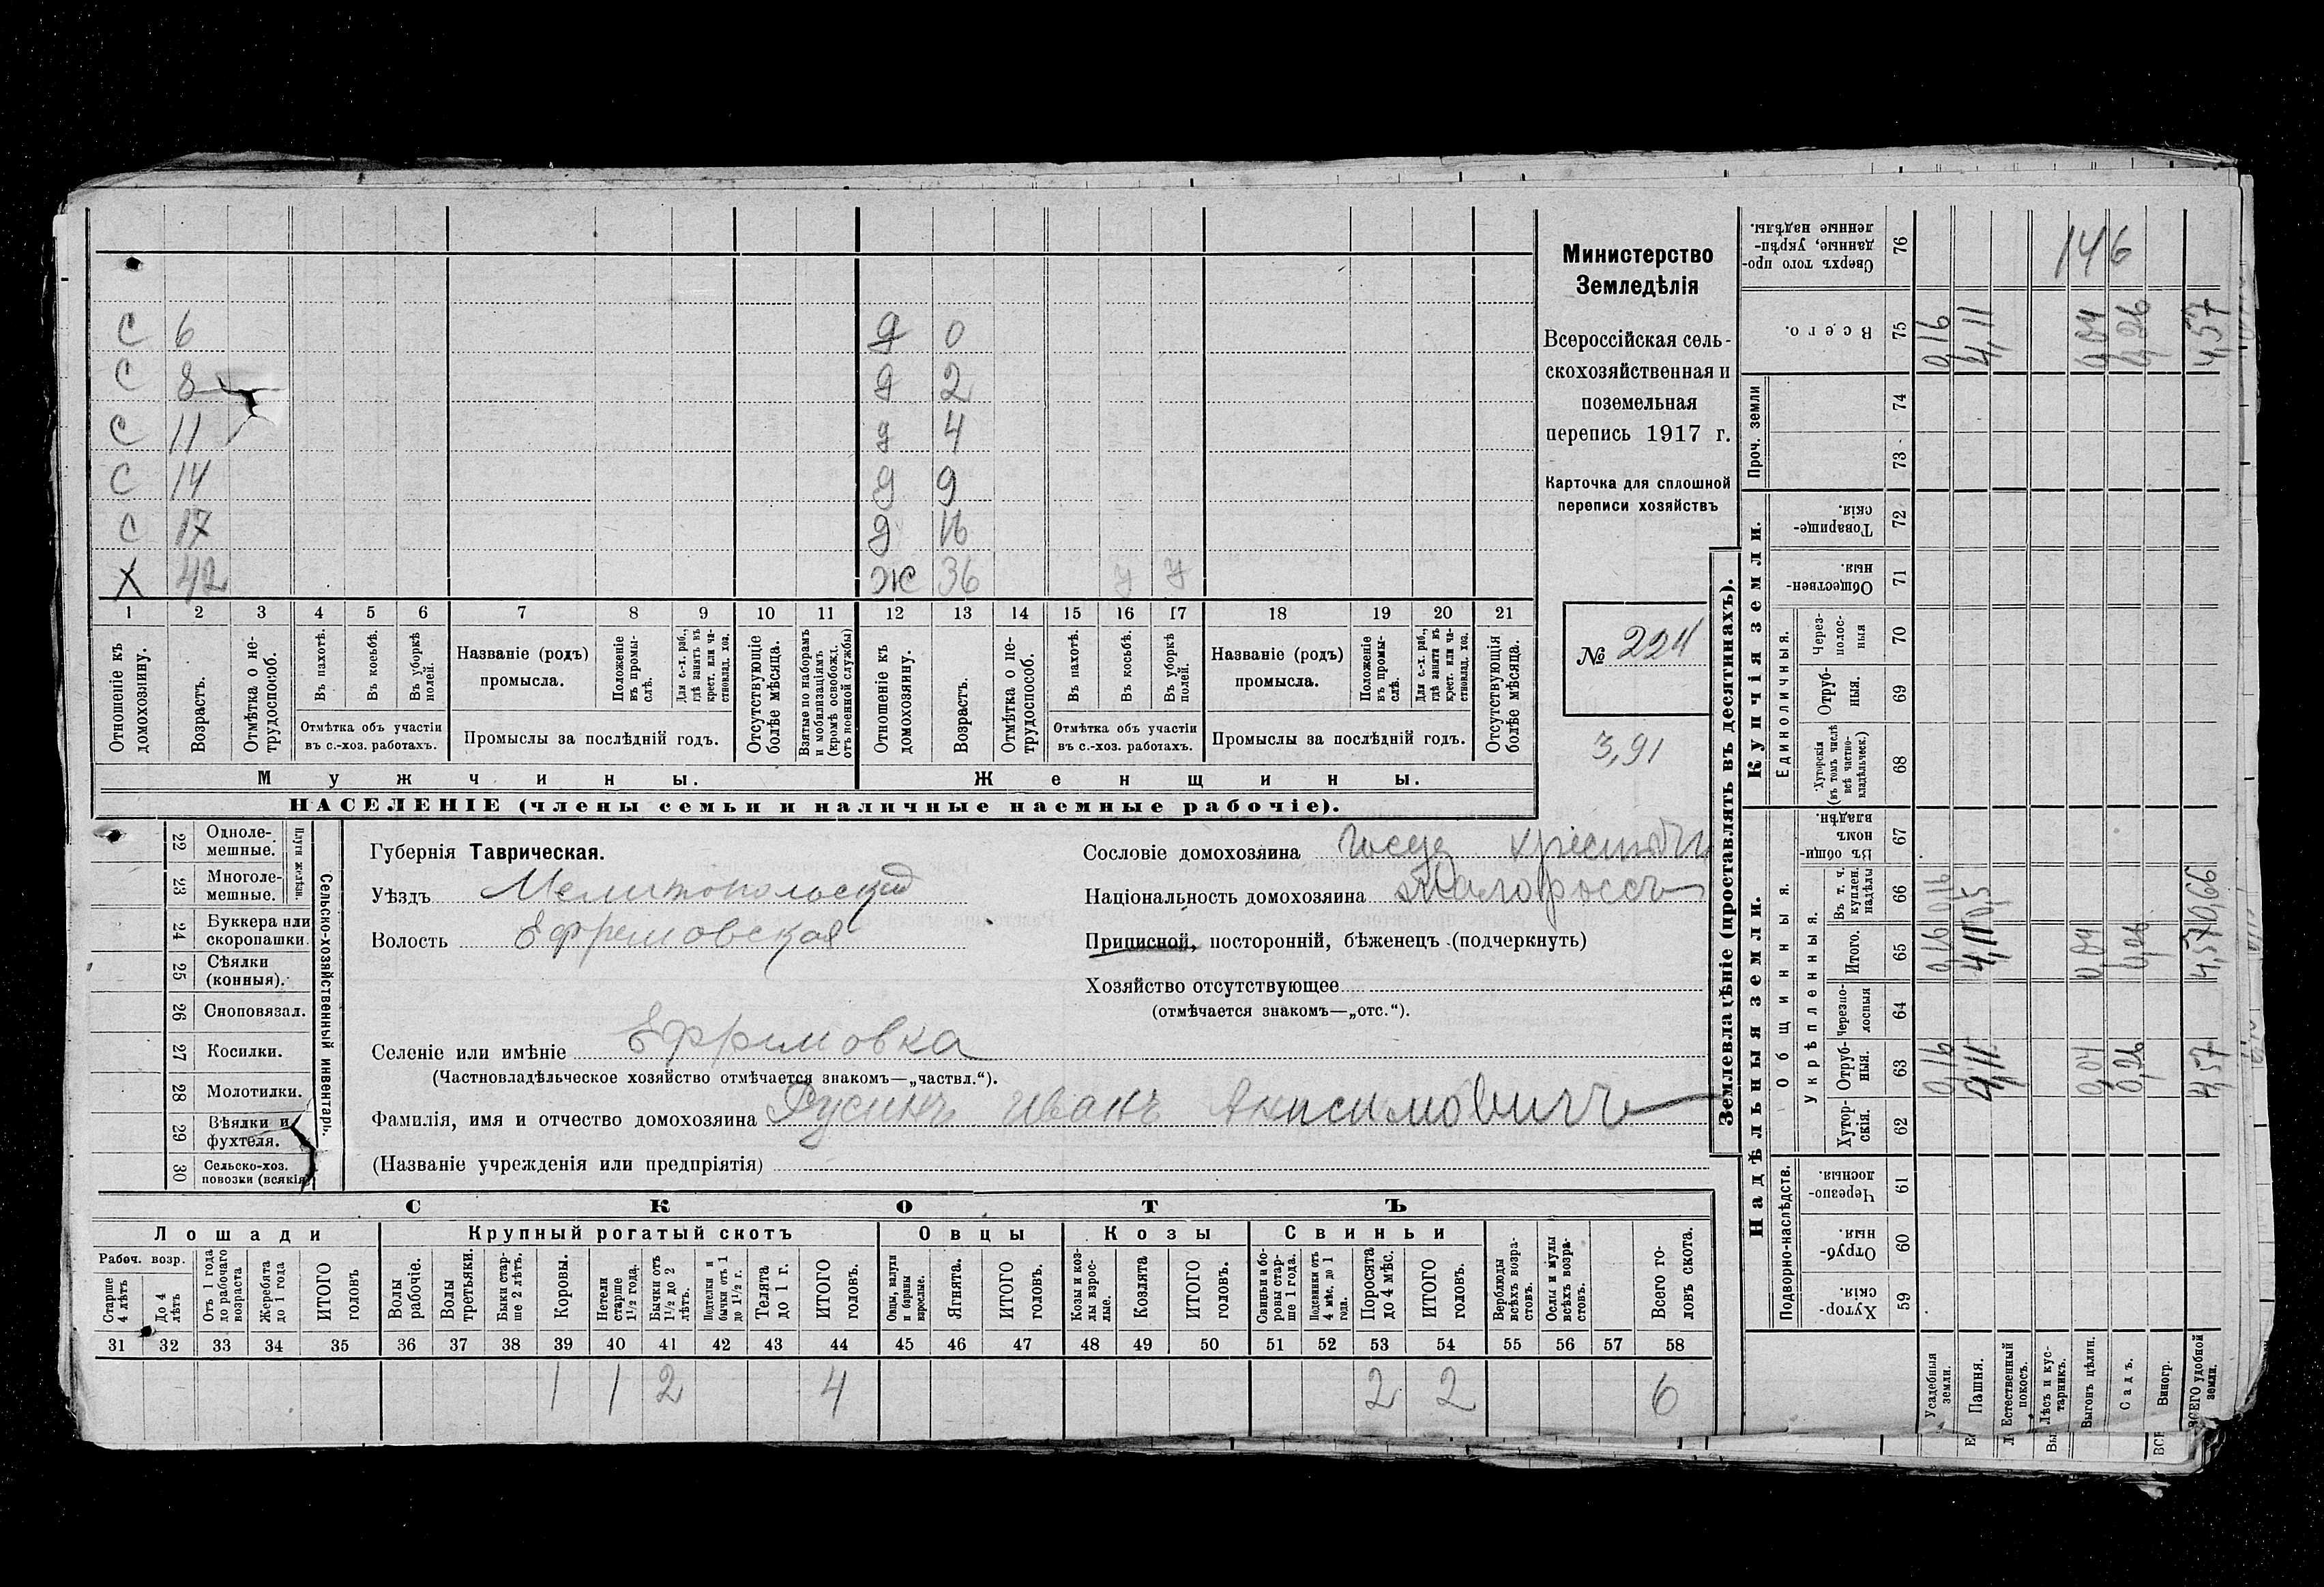 Министерство
Земледѣлія
Всероссійская сель-
скохозяйственная и
поземельная
перепись 1917 г.
Карточка для сплошной
переписи хозяйствъ
№ 224
3,91
С 6 д 0
С 8 д 2
С 11 д 4
С 14 д 9
С 17 д 16
Х 42 Ж 36 У У
1 2 3 4 5 6 7 8 9 10 11 12 13 14 15 16 17 18 19 20 21
Отношеніе къ домохозяину.
Возрастъ.
Отмѣтка о не-трудоспособ.
Въ пахотѣ.
Въ косьбѣ.
Въ уборкѣ полей.
Отмѣтка объ участіи
въ с.-хоз. работахъ.
Названіе (родъ)
промысла.
Положеніе въ промы-слѣ.
Для с.-х. раб., гдѣ занятъ въ крест. или ча-стновлад. хоз.
Промыслы за послѣдній годъ.
Отсутствующіе болѣе мѣсяца.
Взятые по наборамъ и мобилизаціямъ (кромѣ освобожд. отъ военной службы)
Отношеніе къ домохозяину.
Возрастъ.
Отмѣтка о не-трудоспособ.
Въ пахотѣ.
Въ косьбѣ.
Въ уборкѣ полей.
Отмѣтка объ участіи
въ с.-хоз. работахъ.
Названіе (родъ)
промысла.
Положеніе въ промы-слѣ.
Для с.-х. раб., гдѣ занята въ крест. или ча-стновлад. хоз.
Промыслы за послѣдній годъ.
Отсутствующія болѣе мѣсяца.
Мужчины. Женщины.
НАСЕЛЕНІЕ (члены семьи и наличные наемные рабочіе).
Сельско-хозяйственный инвентарь.
Плуги желѣзн.
22 Одноле-мешные.
23 Многоле-мешные.
24 Буккера или скоропашки.
25 Сѣялки (конныя).
26 Сноповязал.
27 Косилки.
28 Молотилки.
29 Вѣялки и фухтеля.
30 Сельско-хоз. повозки (всякія)
Губернія Таврическая.
Уѣздъ Мелитопольскій
Волость Ефремовская
Селеніе или имѣніе Ефремовка
(Частновладѣльческое хозяйство отмѣчается знакомъ—„частвл.“).
Фамилія, имя и отчество домохозяина Русинъ Иванъ Анисимовичъ
(Названіе учрежденія или предпріятія)
Сословіе домохозяина
Національность домохозяина Малороссъ
Приписной, посторонній, бѣженецъ (подчеркнуть)
Хозяйство отсутствующее
(отмѣчается знакомъ—„отс.“).
СКОТЪ
Лошади Крупный рогатый скотъ Овцы Козы Свиньи
Рабоч. возр.
Старше 4 лѣтъ
До 4 лѣтъ
Отъ 1 года до рабочаго возраста
Жеребята до 1 года
ИТОГО головъ
Волы рабочіе.
Волы третьяки.
Быки стар-ше 2 лѣтъ.
Коровы.
Нетели старше 1½ года.
Бычки отъ 1½ до 2 лѣтъ.
Подтелки и бычки отъ 1 до 1½ г.
Телята до 1 г.
ИТОГО головъ.
Овцы, валухи и бараны взрослые.
Ягнята.
ИТОГО головъ.
Козы и коз-лы взрос-лые.
Козлята
ИТОГО головъ.
Свиньи и бо-ровы стар-ше 1 года.
Подсвинки отъ 4 мѣс. до 1 года.
Поросята до 4 мѣс.
ИТОГО головъ.
Верблюды всѣхъ возра-стовъ.
Ослы и мулы всѣхъ возра-стовъ.
Всего го-ловъ скота.
31 32 33 34 35 36 37 38 39 40 41 42 43 44 45 46 47 48 49 50 51 52 53 54 55 56 57 58
1 1 2 4 2 2 6
Землевладѣніе (проставлять въ десятинахъ).
Надѣльныя земли.
Подворно-наслѣдств.
Хутор-скія. 59
Отруб-ныя. 60
Черезпо-лосныя. 61
Общинныя.
Укрѣпленныя.
Хутор-скія. 62
Отруб-ныя. 63
Черезпо-лосныя 64
Итого. 65
Въ т. ч. куплен. надѣлы 66
Въ общи-номъ владѣн. 67
Купчія земли.
Единоличныя.
Хуторскія (въ томъ числѣ всѣ частно-владѣльческ.) 68
Отруб-ныя. 69
Через-полос-ныя 70
Обществен-ныя. 71
Товарище-скія. 72
Проч. земли
73
74
Всего. 75
Сверхъ того про-данные, укрѣп-ленные надѣлы. 76
Усадебныя земли. 0,16 0,16 0,16 0,16
Пашня. 4,11 4,11 0,5 4,11
Естественный покосъ.
Лѣсъ и кус-тарникъ.
Выгонъ цѣлин. 0,04 0,04 0,04
Садъ. 0,26 0,26 0,26
Виногр.
ВСЕГО удобной земли. 4,57 4,57 0,66 4,57
146